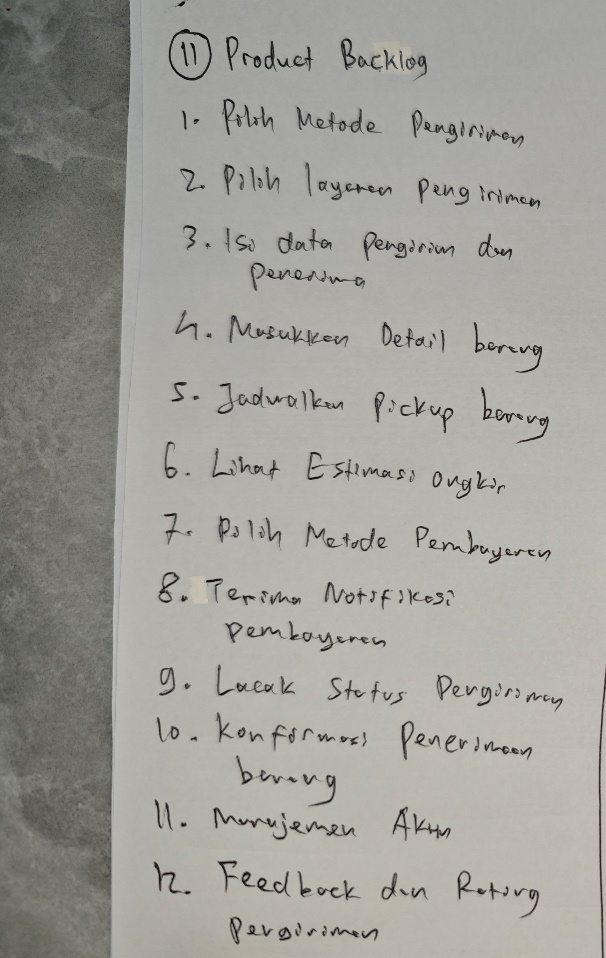 11 Product Backlog
1. Pilih Metode Pengiriman
2. Pilih layanan pengiriman
3. Isi data pengirim dan
penerima
4. Masukkan Detail barang
5. Jadwalkan Pickup barang
6. Lihat Estimasi ongkir
7. Pilih Metode Pembayaran
8. Terima Notifikasi
pembayaran
9. Lacak Status Pengiriman
10. Konfirmasi Penerimaan
barang
11. Manajemen Akun
12. Feedback dan Rating
pengiriman